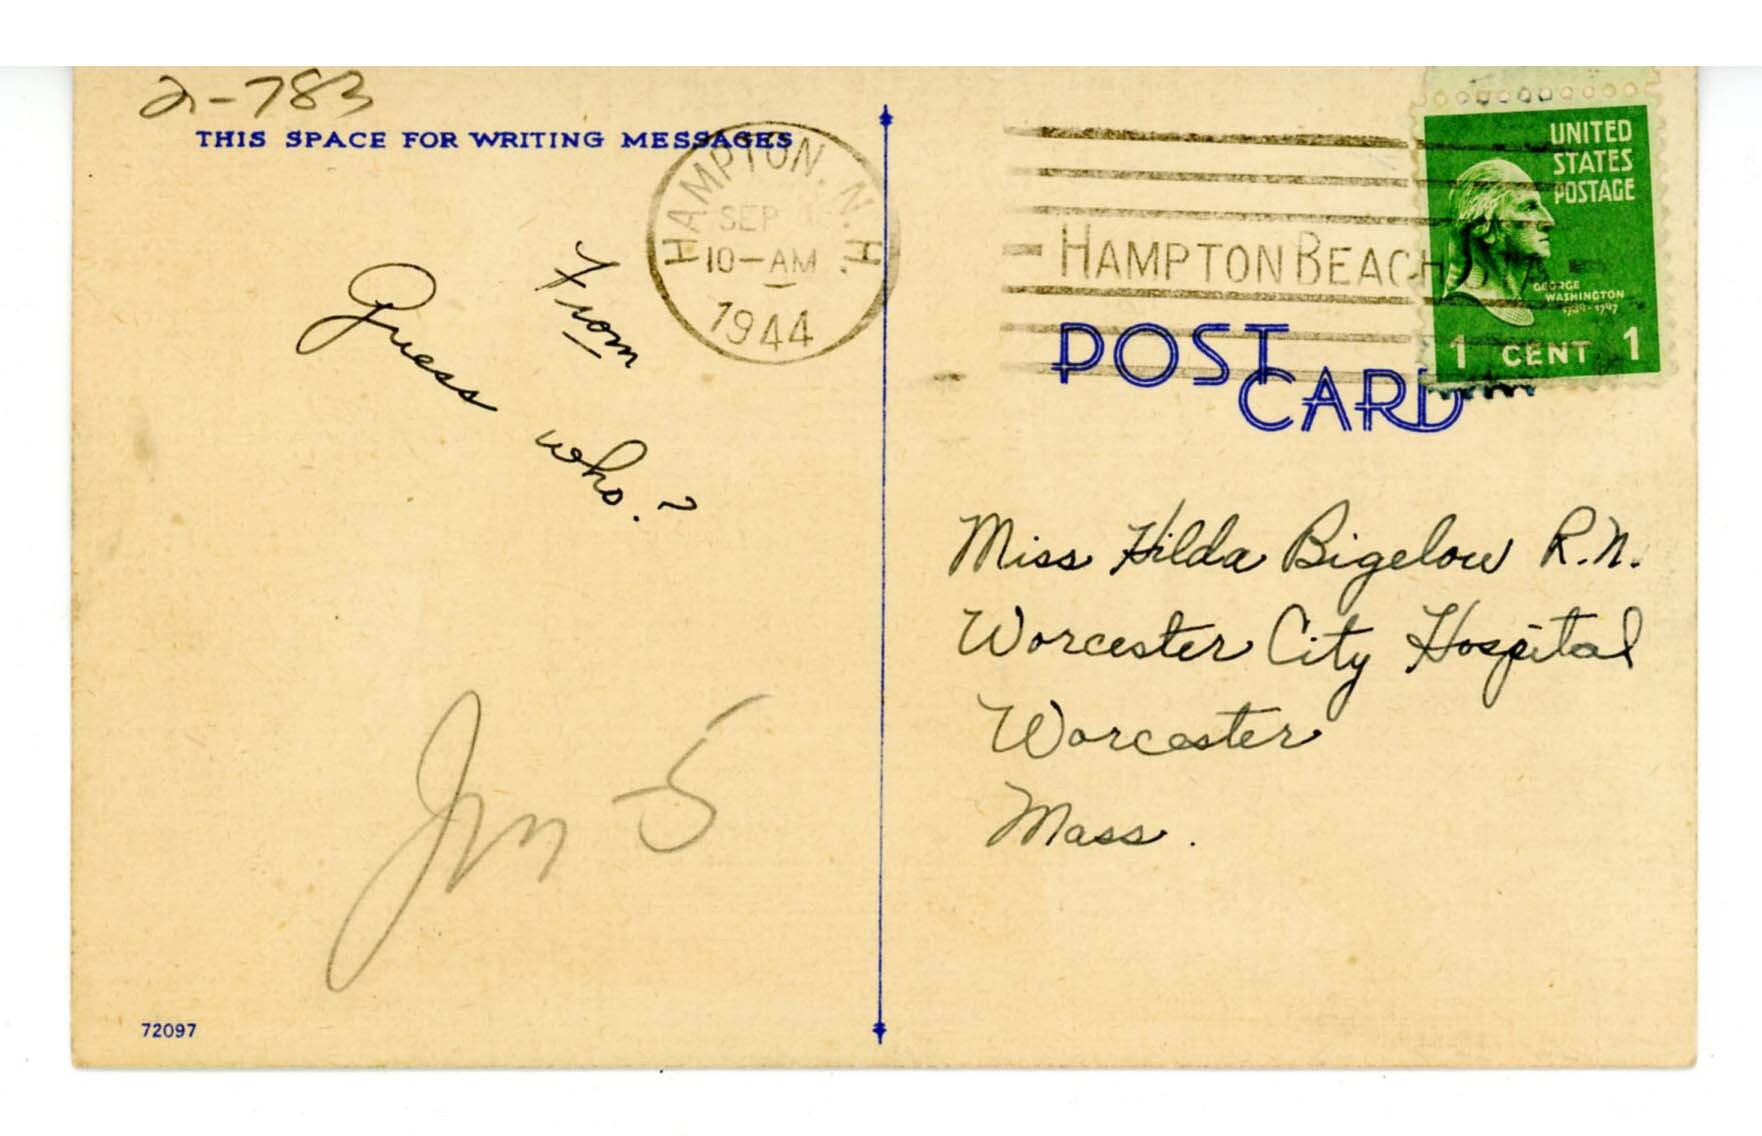 2-783
THIS SPACE FOR WRITING MESSAGES
HAMPTON, N.H.
SEP
10-AM
1944
From
Guess who?
72097
HAMPTON BEACH STA
UNITED
STATES
POSTAGE
GEORGE
WASHINGTON
1 CENT 1
POST
CARD
Miss Hilda Bigelow R.N.
Worcester City Hospital
Worcester
Mass.